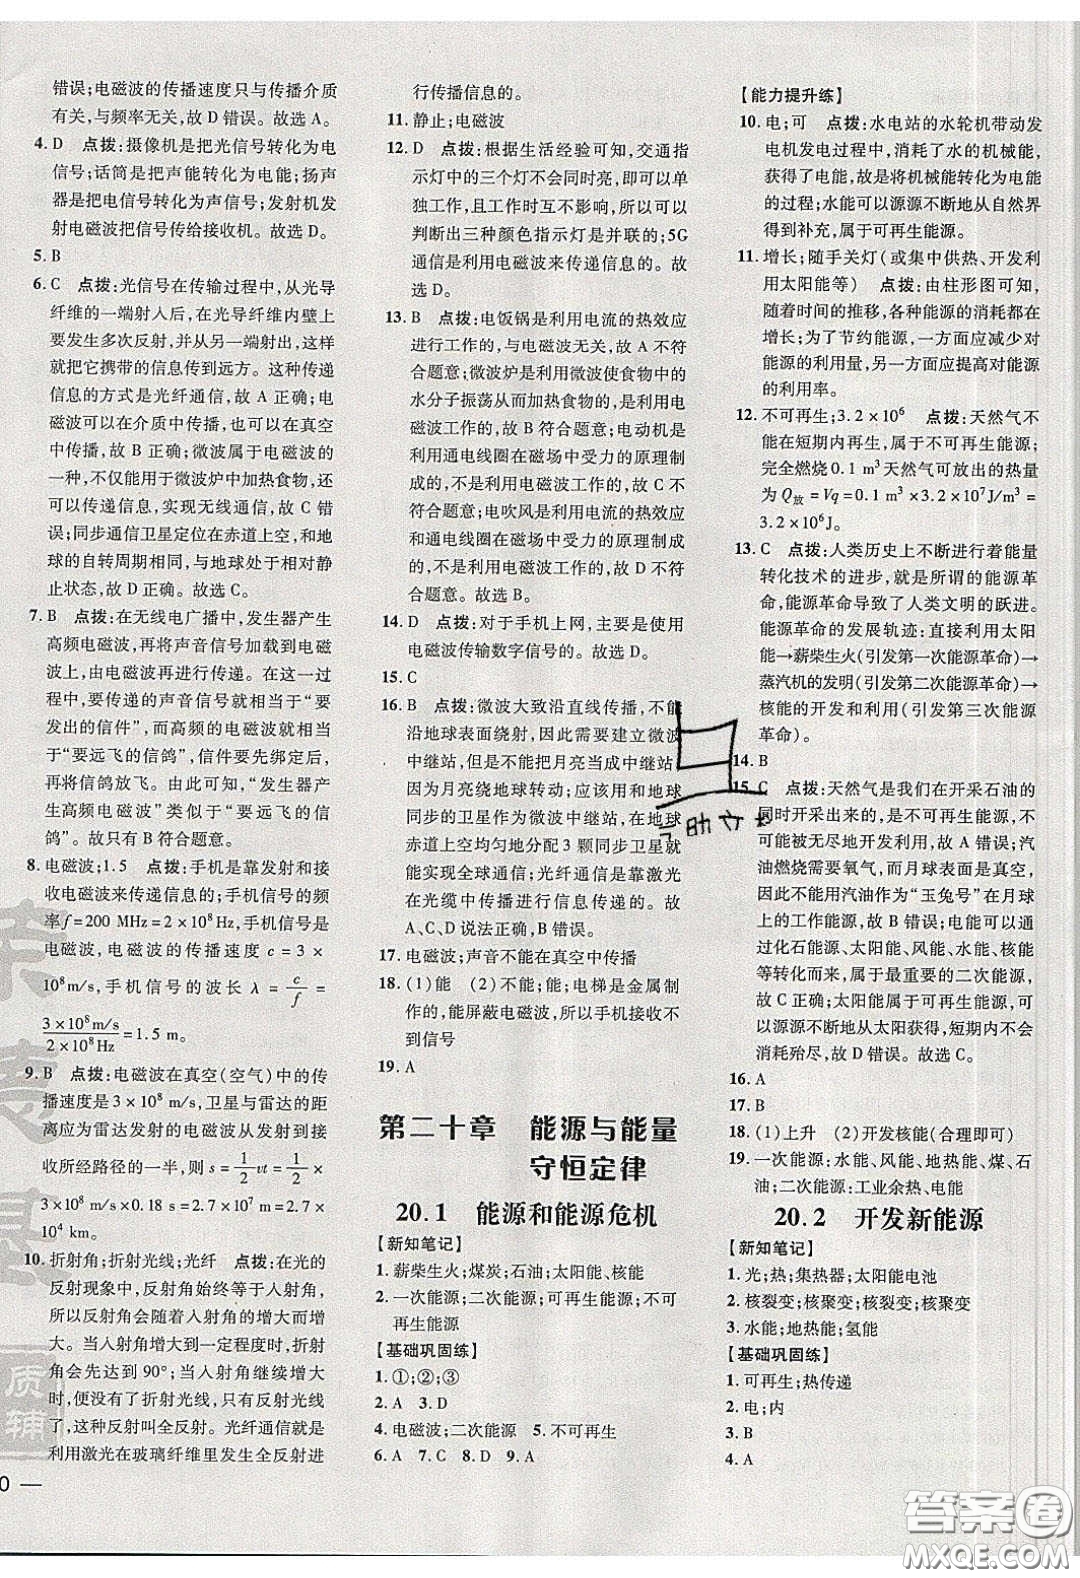 错误;电磁波的传播速度只与传播介质
有关,与频率无关,故 D 错误。故选 A。
4. D 点拨:摄像机是把光信号转化为电
信号;话筒是把声能转化为电能;扬声
器是把电信号转化为声信号;发射机发
射电磁波把信号传给接收机。故选 D。
5. B
6. C 点拨:光信号在传输过程中,从光导
纤维的一端射人后,在光导纤维内壁上
要发生多次反射,从另一端射出,这样就
把它携带的信息传到远方。这种传递
信息的方式是光纤通信,故 A 正确;电
磁波可以在介质中传播,也可以在真空
中传播,故 B 正确;微波属于电磁波的
一种,不仅能用于微波炉中加热食物,还
可以传递信息,实现无线通信,故 C 错
误;同步通信卫星定位在赤道上空,和地
球的自转周期相同,与地球处于相对静
止状态,故 D 正确。故选 C。
7. B 点拨:在无线电广播中,发生器产生
高频电磁波,再将声音信号加载到电磁
波上,由电磁波再进行传递。在这一过
程中,要传递的声音信号就相当于“要
发出的信件”,而高频的电磁波就相当
于“要远飞的信鸽”,信件要先绑定后,
再将信鸽放飞。由此可知,“发生器产
生高频电磁波”类似于“要远飞的信
鸽”。故只有 B 符合题意。
8. 电磁波;1.5 点拨:手机是靠发射和接
收电磁波来传递信息的;手机信号的频
率 f=200 MHz=2×10⁸Hz,手机信号是
电磁波,电磁波的传播速度 c=3×
10⁸m/s,手机信号的波长 λ=c/f=
3×10⁸m/s/2×10⁸Hz=1.5 m。
9. B 点拨:电磁波在真空(空气)中的传
播速度是 3×10⁸m/s,卫星与雷达的距
离应为雷达发射的电磁波从发射到接
收所经路径的一半,则 s=1/2vt=1/2×
3×10⁸m/s×0.18 s=2.7×10⁷m=2.7×
10⁴ km。
10. 折射角;折射光线;光纤 点拨:在光的
反射现象中,反射角始终等于入射角,
所以反射角会随着入射角的增大而增
大。当入射角增大到一定程度时,折射
角会先达到 90°;当入射角继续增大
时,就没有了折射光线,只有反射光线
了,这种反射叫全反射。光纤通信就是
利用激光在玻璃纤维里发生全反射进
0 —
行传播信息的。
11. 静止;电磁波
12. D 点拨:根据生活经验可知,交通指
示灯中的三个灯不会同时亮,即可以单
独工作,且工作时互不影响,所以可以
判断出三种颜色指示灯是并联的;5G
通信是利用电磁波来传递信息的。故
选 D。
13. B 点拨:电饭锅是利用电流的热效应
进行工作的,与电磁波无关,故 A 不符
合题意;微波炉是利用微波使食物中的
水分子振荡从而加热食物的,是利用电
磁波工作的,故 B 符合题意;电动机是
利用通电线圈在磁场中受力的原理制
成的,不是利用电磁波工作的,故 C 不
符合题意;电吹风是利用电流的热效应
和通电线圈在磁场中受力的原理工作
的,不是利用电磁波工作的,故 D 不符
合题意。故选 B。
14. D 点拨:对于手机上网,主要是使用
电磁波传输数字信号的。故选 D。
15. C
16. B 点拨:微波大致沿直线传播,不能
沿地球表面绕射,因此需要建立微波
中继站,但是不能把月亮当成中继站,
因为月亮绕地球转动;应利用和地球
同步的卫星作为微波中继站,在地球
赤道上空均匀地分配 3 颗同步卫星就
能实现全球通信;光纤通信是靠激光
在光缆中传播进行通信的。
故 A、C、D 说法正确,B 错误。
17. 电磁波;声音不能在真空中传播
18. (1)能 (2)不能;能;电梯是金属制
作的,能屏蔽电磁波,所以手机接收不
到信号
19. A
第二十章 能源与能量
守恒定律
20.1 能源和能源危机
【新知笔记】
1. 薪柴生火;煤炭;石油;太阳能、核能
2. 一次能源;二次能源;可再生能源;不可
再生能源
【基础巩固练】
1. ①;②;③
2. A 3. D
4. 电磁波;二次能源 5. 不可再生
6. A 7. C 8. D 9. A
【能力提升练】
10. 电;可 点拨:水电站的水轮机带动发
电机发电过程中,消耗了水的机械能,
获得了电能,是将机械能转化为电能
的过程;水能可以源源不断地从自然界
得到补充,属于可再生能源。
11. 增长;随手关灯(或集中供热、开发利
用太阳能等) 点拨:由柱形图可知,
随着时间的推移,各种能源的消耗都在
增长;为了节约能源,一方面应减少对
能源的利用量,另一方面应提高对能源
的利用率。
12. 不可再生;3.2×10⁶ 点拨:天然气不
能在短期内再生,属于不可再生能源;
完全燃烧 0.1 m³天然气可放出的热量
为 Q放=Vq=0.1 m³×3.2×10⁷J/m³=
3.2×10⁶J。
13. C 点拨:人类历史上不断进行着能量
转化技术的进步,就是所谓的能源革
命,能源革命导致了人类文明的跃进。
能源革命的发展轨迹:直接利用太阳
能→薪柴生火(引发第一次能源革命)→
蒸汽机的发明(引发第二次能源革命)→
核能的开发和利用(引发第三次能源
革命)。
14. B
15. C 点拨:天然气是我们在开采石油的
同时开采出来的,是一种化石能源,是
不能无穷无尽开发利用的,故 A 错误;汽
油燃烧需要氧气,而月球表面是真空,
因此不能用汽油作为“玉兔号”在月球
上的工作能源,故 B 错误;电能可以通
过化石能源、太阳能、风能、水能、核能
等转化而来,属于最重要的二次能源,
故 C 正确;太阳能属于可再生能源,可
以源源不断地从太阳获得,短期内不会
消耗殆尽,故 D 错误。故选 C。
16. A
17. B
18. (1)上升 (2)开发核能(合理即可)
19. 一次能源:水能、风能、地热能、煤、石
油;二次能源:工业余热、电能
20.2 开发新能源
【新知笔记】
1. 光;热;集热器;太阳能电池
2. 核裂变;核聚变;核裂变;核聚变
3. 水能;地热能;氢能
【基础巩固练】
1. 可再生;热传递
2. 电;内
3. B
4. A
质
辅
答案卷
MXQE.COM